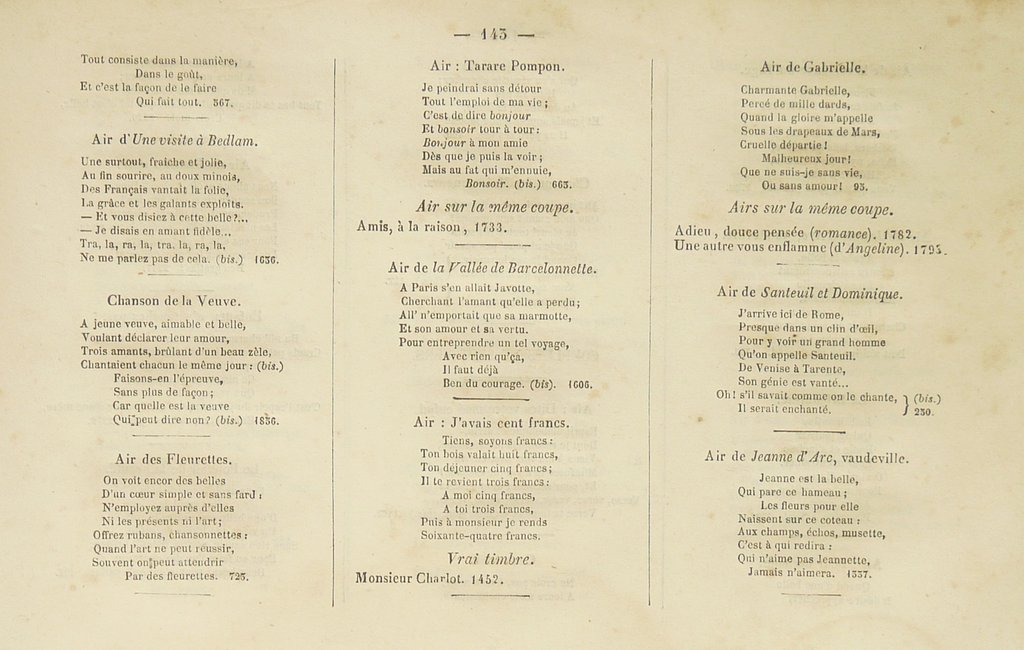 — 143 —
Tout consiste dans la manière,
Dans le goût,
Et c'est la façon de le faire
Qui fait tout. 567.
Air d'Une visite à Bedlam.
Une surtout, fraîche et jolie,
Au fin sourire, au doux minois,
Des Français vantait la folie,
La grâce et les galants exploits.
— Et vous disiez à cette belle?...
— Je disais en amant fidèle...
Tra, la, ra, la, tra, la, ra, la,
Ne me parlez pas de cela. (bis.) 1636.
Chanson de la Veuve.
A jeune veuve, aimable et belle,
Voulant déclarer leur amour,
Trois amants, brûlant d'un beau zèle,
Chantaient chacun le même jour : (bis.)
Faisons-en l'épreuve,
Sans plus de façon ;
Car quelle est la veuve
Qui peut dire non? (bis.) 1836.
Air des Fleurettes.
On voit encor des belles
D'un cœur simple et sans fard :
N'employez auprès d'elles
Ni les présents ni l'art ;
Offrez rubans, chansonnettes :
Quand l'art ne peut réussir,
Souvent on peut attendrir
Par des fleurettes. 725.
Air : Tarare Pompon.
Je peindrai sans détour
Tout l'emploi de ma vie ;
C'est de dire bonjour
Et bonsoir tour à tour :
Bonjour à mon amie
Dès que je puis la voir ;
Mais au fat qui m'ennuie,
Bonsoir. (bis.) 663.
Air sur la même coupe.
Amis, à la raison, 1733.
Air de la Vallée de Barcelonnette.
A Paris s'en allait Javotte,
Cherchant l'amant qu'elle a perdu ;
All' n'emportait que sa marmotte,
Et son amour et sa vertu.
Pour entreprendre un tel voyage,
Avec rien qu'ça,
Il faut déjà
Ben du courage. (bis). 1606.
Air : J'avais cent francs.
Tiens, soyons francs :
Ton bois valait huit francs,
Ton déjeuner cinq francs ;
Il te revient trois francs :
A moi cinq francs,
A toi trois francs,
Puis à monsieur je rends
Soixante-quatre francs.
Vrai timbre.
Monsieur Charlot. 1452.
Air de Gabrielle.
Charmante Gabrielle,
Percé de mille dards,
Quand la gloire m'appelle
Sous les drapeaux de Mars,
Cruelle départie !
Malheureux jour !
Que ne suis-je sans vie,
Ou sans amour ! 93.
Airs sur la même coupe.
Adieu, douce pensée (romance). 1782.
Une autre vous enflamme (d'Angeline). 1795.
Air de Santeuil et Dominique.
J'arrive ici de Rome,
Presque dans un clin d'œil,
Pour y voir un grand homme
Qu'on appelle Santeuil.
De Venise à Tarente,
Son génie est vanté...
Oh! s'il savait comme on le chante, } (bis.)
Il serait enchanté. } 250.
Air de Jeanne d'Arc, vaudeville.
Jeanne est la belle,
Qui pare ce hameau ;
Les fleurs pour elle
Naissent sur ce coteau :
Aux champs, échos, musette,
C'est à qui redira :
Qui n'aime pas Jeannette,
Jamais n'aimera. 1337.